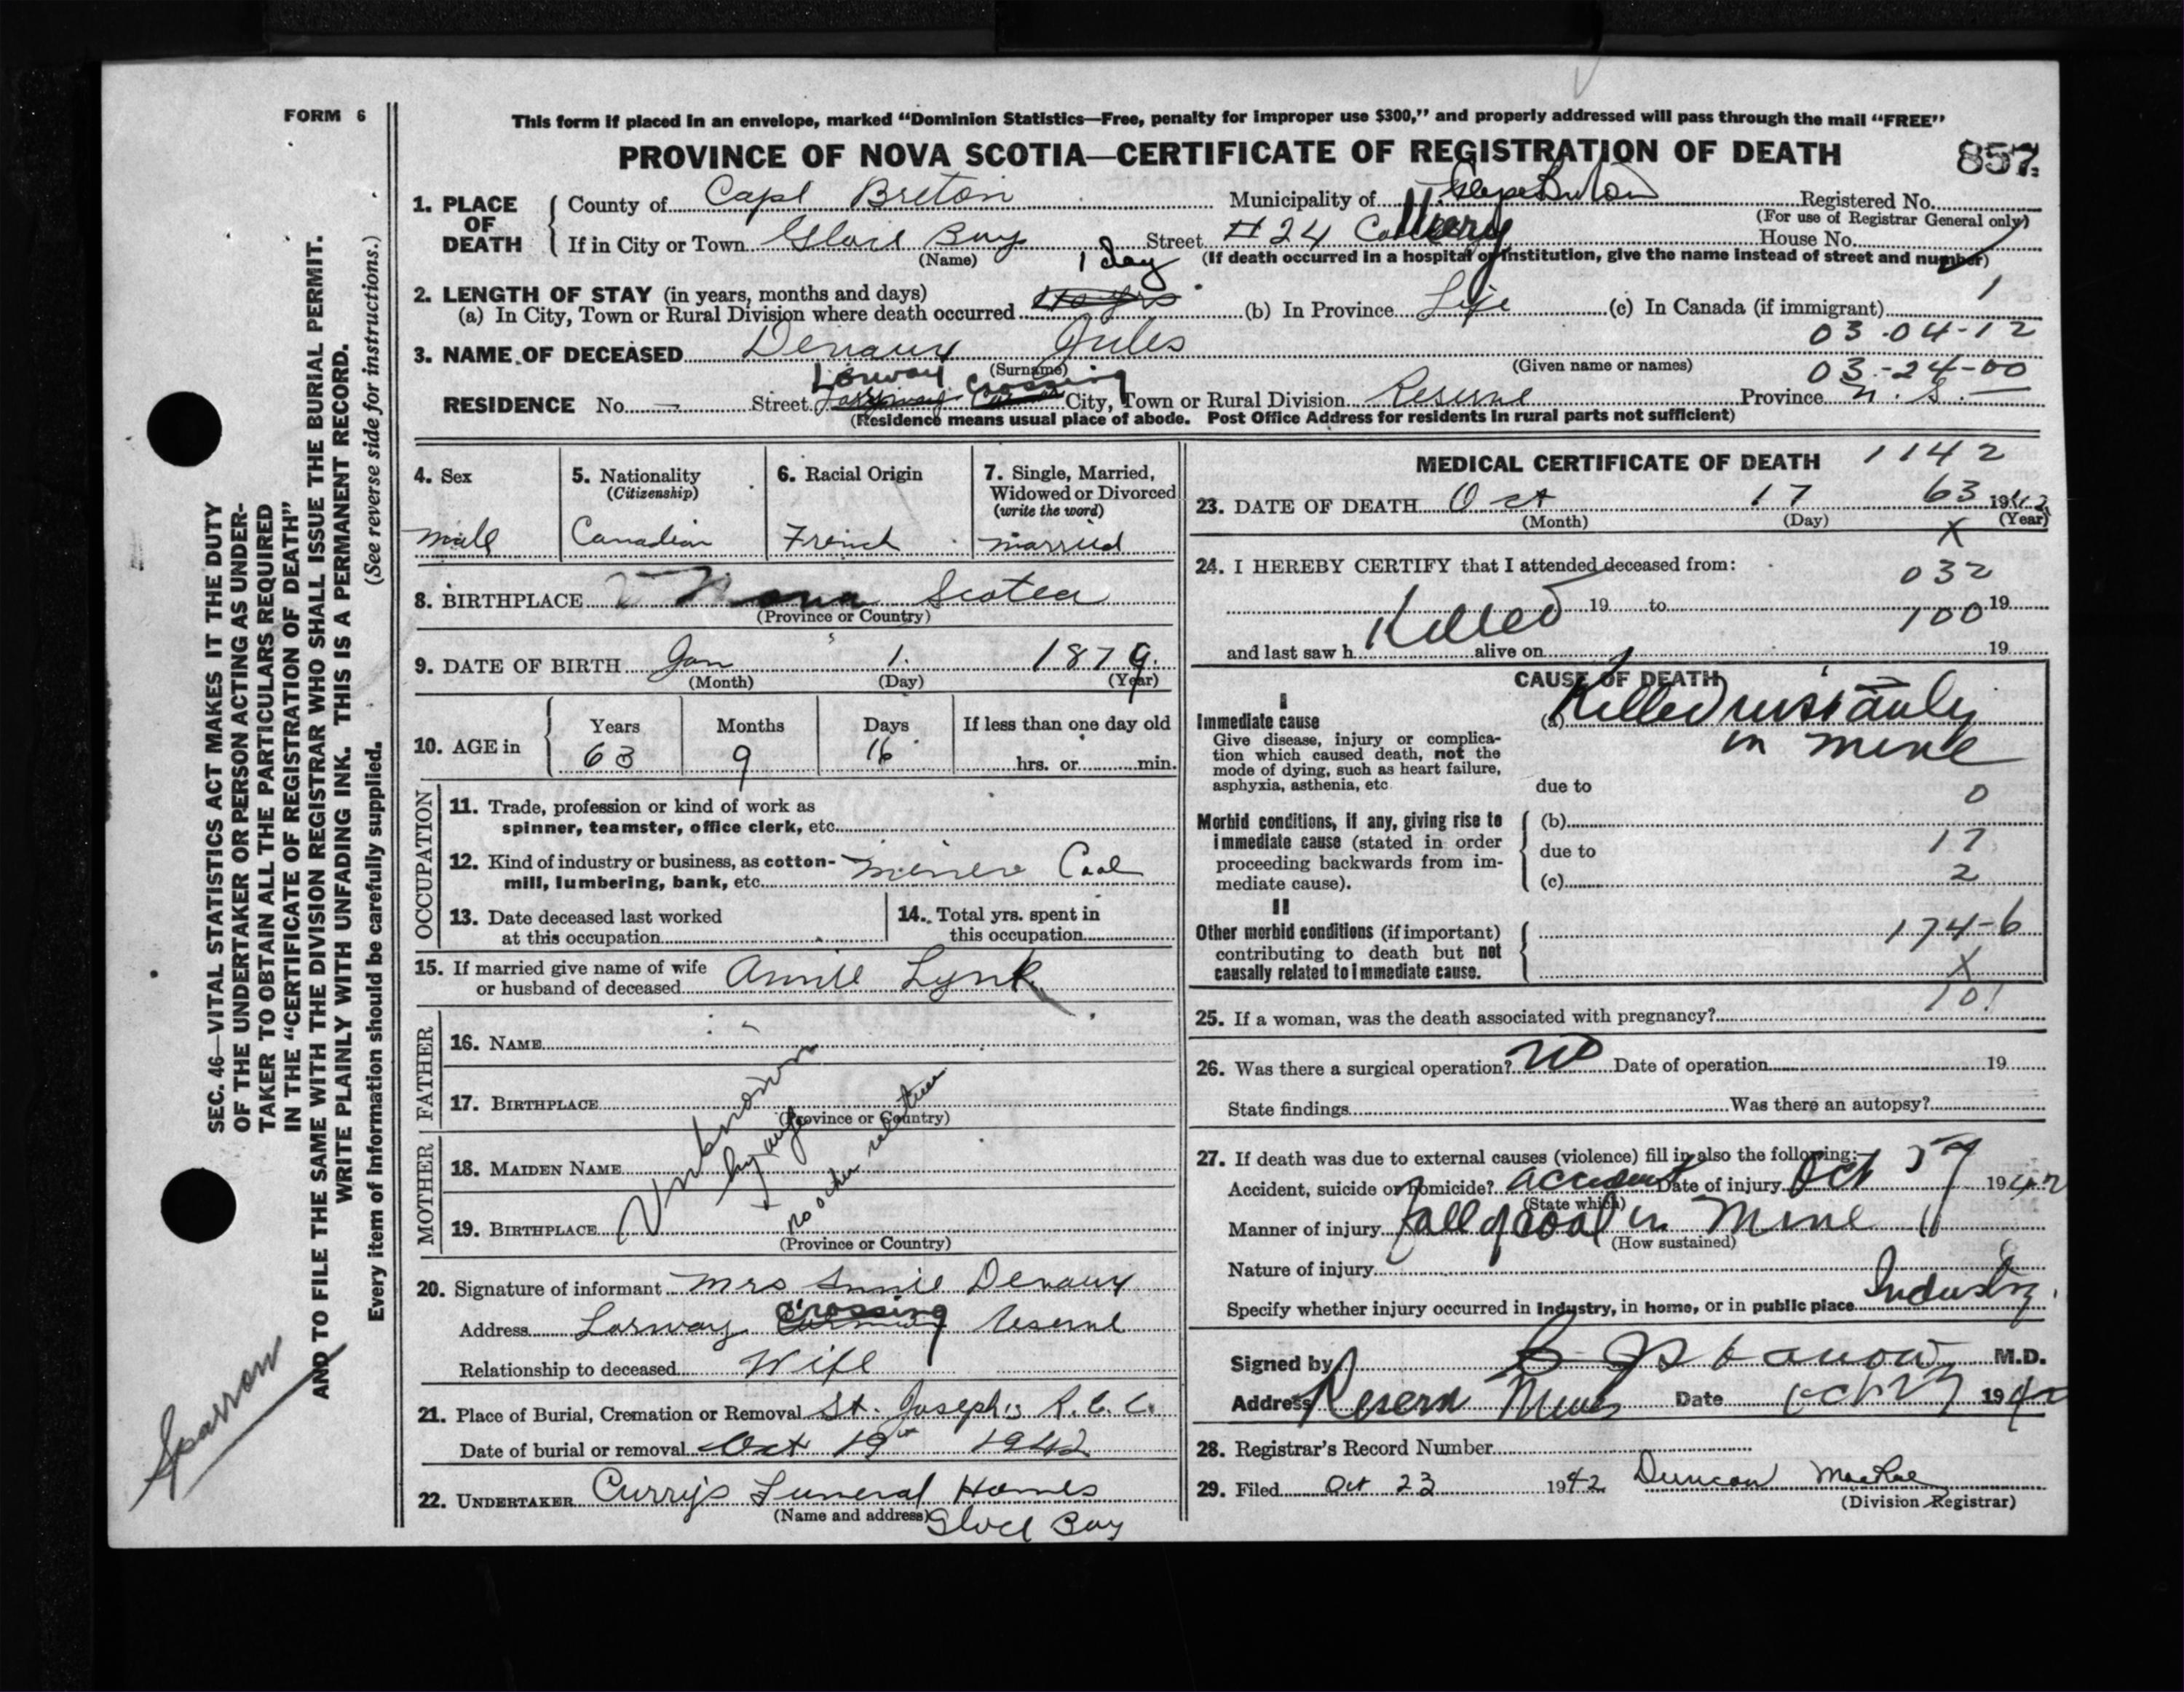 FORM 6
This form if placed in an envelope, marked “Dominion Statistics—Free, penalty for improper use $300,” and properly addressed will pass through the mail “FREE”
PROVINCE OF NOVA SCOTIA—CERTIFICATE OF REGISTRATION OF DEATH
857
1. PLACE OF DEATH
County of Cape Breton Municipality of Cape Breton Registered No.
(For use of Registrar General only)
If in City or Town Glace Bay Street #24 Colliery House No.
(Name) (If death occurred in a hospital or institution, give the name instead of street and number)
2. LENGTH OF STAY (in years, months and days) 1 day
(a) In City, Town or Rural Division where death occurred (b) In Province Life (c) In Canada (if immigrant) 1
03-04-12
3. NAME OF DECEASED Devaux Jules
(Surname) (Given name or names) 03-24-00
Lorway Crossing
RESIDENCE No. — Street City, Town or Rural Division Reserve Province N.S.
(Residence means usual place of abode. Post Office Address for residents in rural parts not sufficient)
4. Sex
male
5. Nationality
(Citizenship)
Canadian
6. Racial Origin
French
7. Single, Married, Widowed or Divorced
(write the word)
married
8. BIRTHPLACE Nova Scotia
(Province or Country)
9. DATE OF BIRTH Jan 1. 1879.
(Month) (Day) (Year)
10. AGE in Years Months Days If less than one day old
63 9 16 hrs. or min.
OCCUPATION
11. Trade, profession or kind of work as
spinner, teamster, office clerk, etc.
12. Kind of industry or business, as cotton-
mill, lumbering, bank, etc. Coal
13. Date deceased last worked
at this occupation
14. Total yrs. spent in
this occupation
15. If married give name of wife
or husband of deceased Annie Lynk
FATHER
16. NAME
17. BIRTHPLACE
(Province or Country)
MOTHER
18. MAIDEN NAME
19. BIRTHPLACE
(Province or Country)
Unknown
by wife
+
no other relatives
20. Signature of informant Mrs Annie Devaux
Address Lorway Crossing Reserve
Relationship to deceased Wife
21. Place of Burial, Cremation or Removal St. Joseph's R.C.C.
Date of burial or removal Oct 19th 1942
22. UNDERTAKER Curry's Funeral Homes
(Name and address) Glace Bay
MEDICAL CERTIFICATE OF DEATH 1142
23. DATE OF DEATH Oct 17 63 1942
(Month) (Day) (Year)
X
24. I HEREBY CERTIFY that I attended deceased from:
032
19 to 19
100
Killed
and last saw h alive on 19
CAUSE OF DEATH
I
Immediate cause
Give disease, injury or complica-
tion which caused death, not the
mode of dying, such as heart failure,
asphyxia, asthenia, etc
(a) Killed instantly
in mine
due to
0
Morbid conditions, if any, giving rise to
immediate cause (stated in order
proceeding backwards from im-
mediate cause).
(b)
due to 17
(c) 2
II
Other morbid conditions (if important)
contributing to death but not
causally related to immediate cause.
174-6
X
101
25. If a woman, was the death associated with pregnancy?
26. Was there a surgical operation? no Date of operation 19
State findings Was there an autopsy?
27. If death was due to external causes (violence) fill in also the following:
Accident, suicide or homicide? accident Date of injury Oct 1942
(State which)
Manner of injury fall of coal in Mine
(How sustained)
Nature of injury
Specify whether injury occurred in Industry, in home, or in public place Industry.
Signed by M.D.
Address Reserve Mines Date 1942
28. Registrar's Record Number
29. Filed Oct 23 1942 Duncan MacRae
(Division Registrar)
SEC. 46—VITAL STATISTICS ACT MAKES IT THE DUTY
OF THE UNDERTAKER OR PERSON ACTING AS UNDER-
TAKER TO OBTAIN ALL THE PARTICULARS REQUIRED
IN THE “CERTIFICATE OF REGISTRATION OF DEATH”
AND TO FILE THE SAME WITH THE DIVISION REGISTRAR WHO SHALL ISSUE THE BURIAL PERMIT.
WRITE PLAINLY WITH UNFADING INK. THIS IS A PERMANENT RECORD.
Every item of information should be carefully supplied. (See reverse side for instructions.)
Sparrow